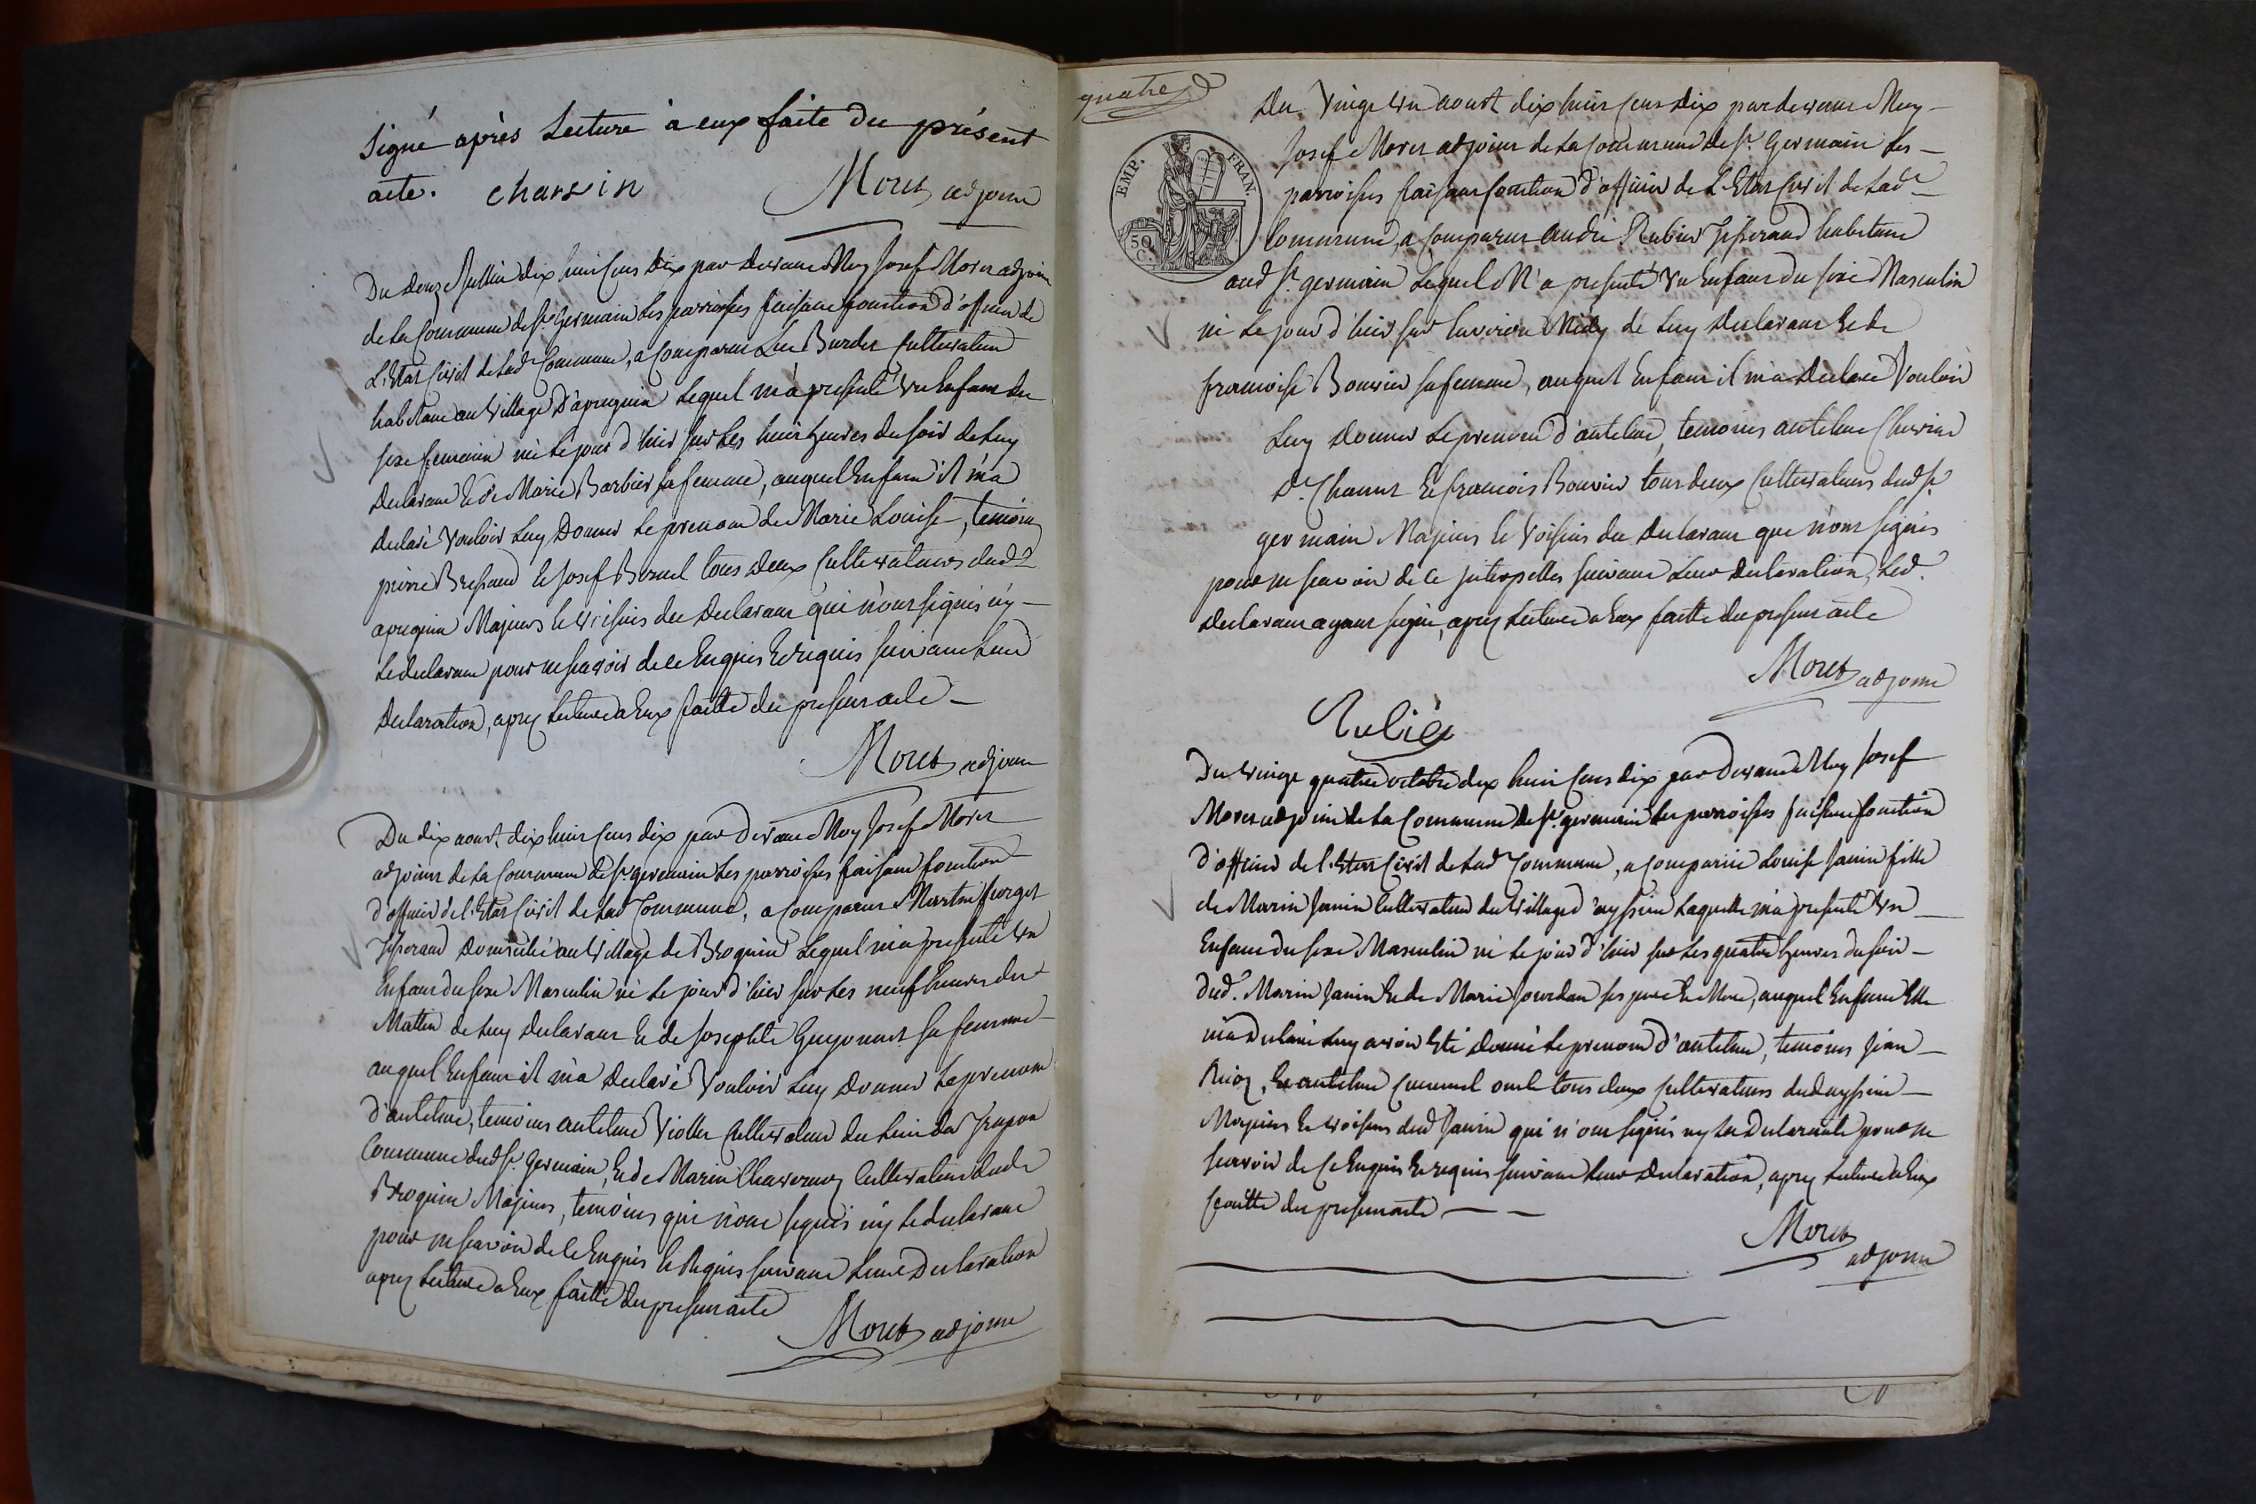 Signé après Lecture à eux faite du présent
acte. charvin Moret adjoint
Du douze Juillin dix huit Cens Dix par devant Moy Josef Moret adjoin
de La Commune de St Germain Les parroisses faisant fonction d'officier de
L'Etat Civil de Lade Commune, a Comparu Luc Burdet Cultivateur
habitant au Village D'apregnin Lequel m'a presenté un Enfant du
sexe feminin né Le jour d'hier sur Les huit heures du soir de Luy
Declarant et de Marie Barbier sa femme, auquel Enfant il m'a
declaré Vouloir Luy Donner Le prenom de Marie Louise, temoins
pierre Bressand et Josef Brunel tous Deux Cultivateurs dud.
apregnin Majeurs et voisins du Declarant qui n'ont signés n'y
Le declarant pour ne scavoir de ce Enquis et requis suivant Leur
Declaration, apres Lecture a Eux faitte du present acte
Moret adjoint
Du dix aout dix huit Cens dix par devant Moy Josef Moret
adjoint de La Commune de St germain Les parroisses faisant fonction
d'officier de l'Etat Civil de Lad Commune, a Comparu Martin forget
Tisserand domicilié au Village de Brognin Lequel m'a presenté un
Enfant du sexe Masculin né Le jour d'hier sur Les neuf heures du
Mattin de Luy declarant et de Josephte Guyonnet sa femme
auquel Enfant il m'a declaré Vouloir Luy Donner Le prenom
d'antelme, temoins antelme Viollet Cultivateur du
Commune dud St Germain, et de Marin Chavornoz Cultivateur dud
Brognin Majeurs, temoins qui n'ont signés n'y Le declarant
pour ne scavoir de ce Enquis et Requis suivant Leur Declaration
apres Lecture a Eux faitte du present acte
Moret adjoint
quatre
EMP. FRAN.
50 C.
Du Vingt un aoust dix huit Cens Dix par devant Moy
Josef Moret adjoint de La Commune de St Germain Les
parroisses faisant fonction d'officier de L'Etat Civil de Lade
Commune, a Comparu andré Rubier Tisserand habitant
aud St germain Lequel M'a presenté un Enfant du sexe Masculin
né Le jour d'hier sur Lenviron Midy de Luy Declarant et de
francoise Bouvier sa femme, auquel Enfant il m'a Declaré Vouloir
Luy Donner Le prenom d'antelme, temoins antelme Chevrier
Dt Chanut et francois Bouvier tous deux Cultivateurs dud St
germain Majeurs et Voisins du declarant que n'ont signés
pour ne scavoir de ce Interpelles suivant Leur declaration, Led.
declarant ayant signé, apres Lecture a Eux faitte du present acte
Moret adjoint
Rubié
Du vingt quatre octobre dix huit Cens dix par devant Moy Josef
Moret adjoint de La Commune de St germain Les parroisses faisant fonction
d'officier de l'Etat Civil de Lad Commune, a Comparue Louise Janin fille
de Marin Janin Cultivateur du Village d'ayssin Laquelle m'a presenté un
Enfant du sexe Masculin né Le jour d'hier sur Les quatre heures du soir
dud. Marin Janin et de Marie Jourdan ses pere et Mere, auquel Enfant Elle
m'a declaré Luy avoir Eté donné Le prenom d'antelme, temoins Jean
et antelme tous deux Cultivateurs dud ayssin
Majeurs et voisins dud Janin qui n'ont signés ny La Declarante pour ne
scavoir de Ce Enquis et requis suivant Leur Declaration, apres Lecture a Eux
faitte du present acte
Moret
adjoint